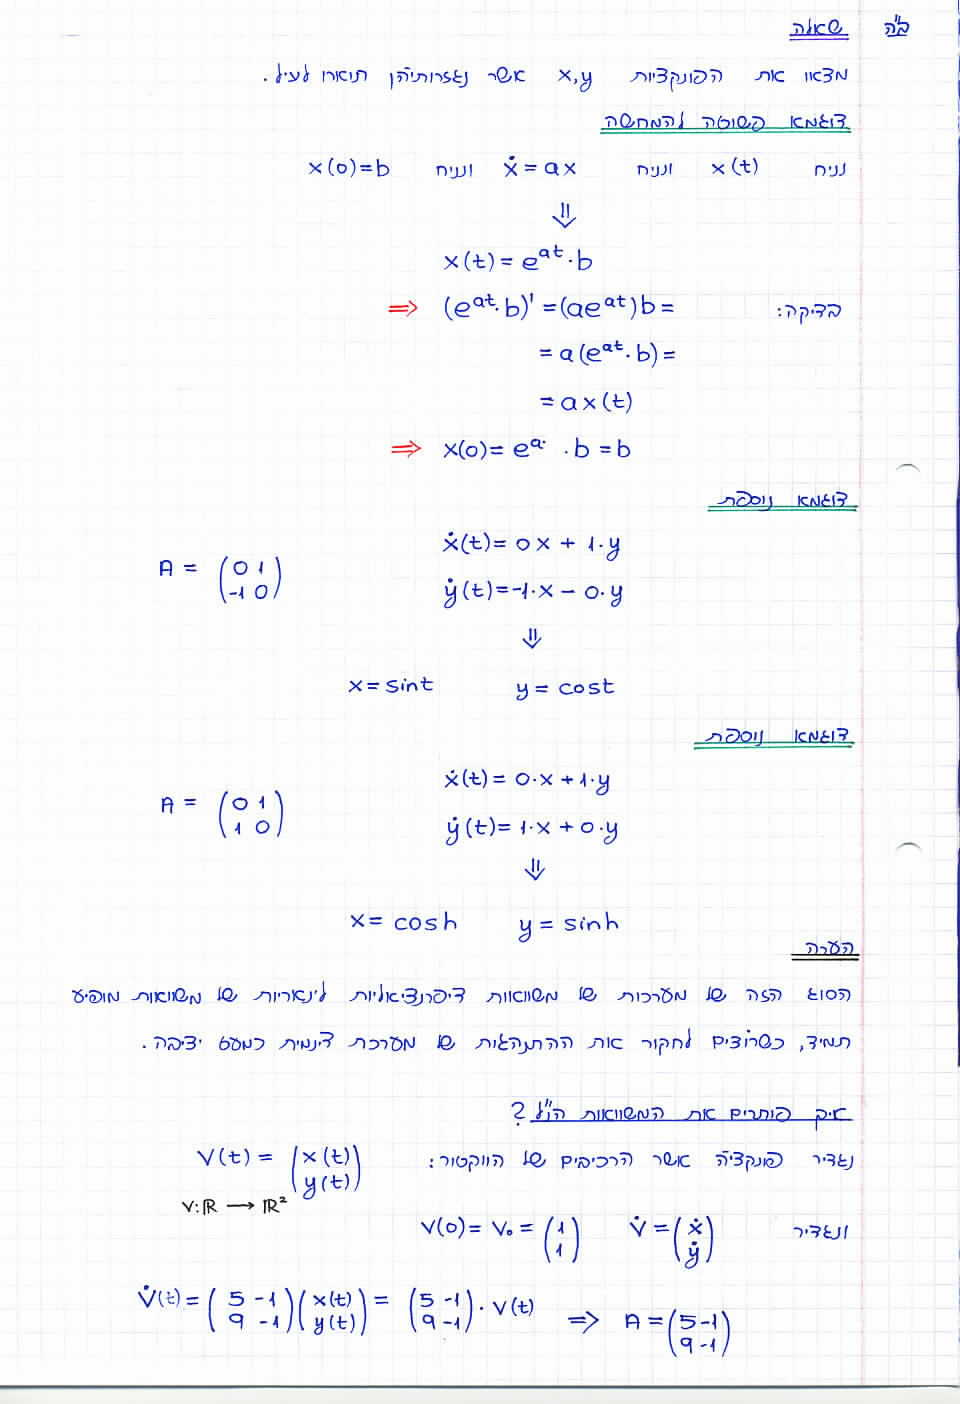 ב"ה שאלה
מצאו את הפונקציות x,y אשר נגזרותיהן תוארו לעיל.
דוגמא פשוטה להמחשה
נניח x(t) ונניח ẋ = ax ונניח x(0)=b
⇓
x(t) = e^{at}·b
בדיקה: ⇒ (e^{at}·b)' = (ae^{at})b =
= a(e^{at}·b) =
= ax(t)
⇒ x(0) = e^{a·} · b = b
דוגמא נוספת
ẋ(t) = 0x + 1·y
A = (0 1 / -1 0)
ẏ(t) = -1·x - 0·y
⇓
x = sint y = cost
דוגמא נוספת
ẋ(t) = 0·x + 1·y
A = (0 1 / 1 0)
ẏ(t) = 1·x + 0·y
⇓
x = cosh y = sinh
הערה
הסוג הזה של מערכות של משוואות דיפרנציאליות לינאריות של משוואות מופיע
תמיד, כשרוצים לחקור את ההתנהגות של מערכת דינמית כמעט יציבה.
איך פותרים את המשוואות הנ"ל?
נגדיר פונקציה אשר הרכיבים של הווקטור: V(t) = (x(t) / y(t))
V:ℝ → ℝ²
ונגדיר V̇ = (ẋ / ẏ) V(0) = V₀ = (1 / 1)
V̇(t) = (5 -1 / 9 -1)(x(t) / y(t)) = (5 -1 / 9 -1)·V(t) ⇒ A = (5 -1 / 9 -1)